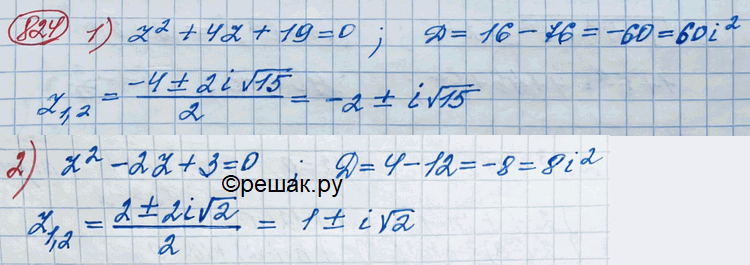 824 1) z² + 4z + 19 = 0 ; D = 16 - 76 = -60 = 60i²
z₁,₂ = (-4 ± 2i√15)/2 = -2 ± i√15
2) z² - 2z + 3 = 0 ; D = 4 - 12 = -8 = 8i²
©решак.ру
z₁,₂ = (2 ± 2i√2)/2 = 1 ± i√2